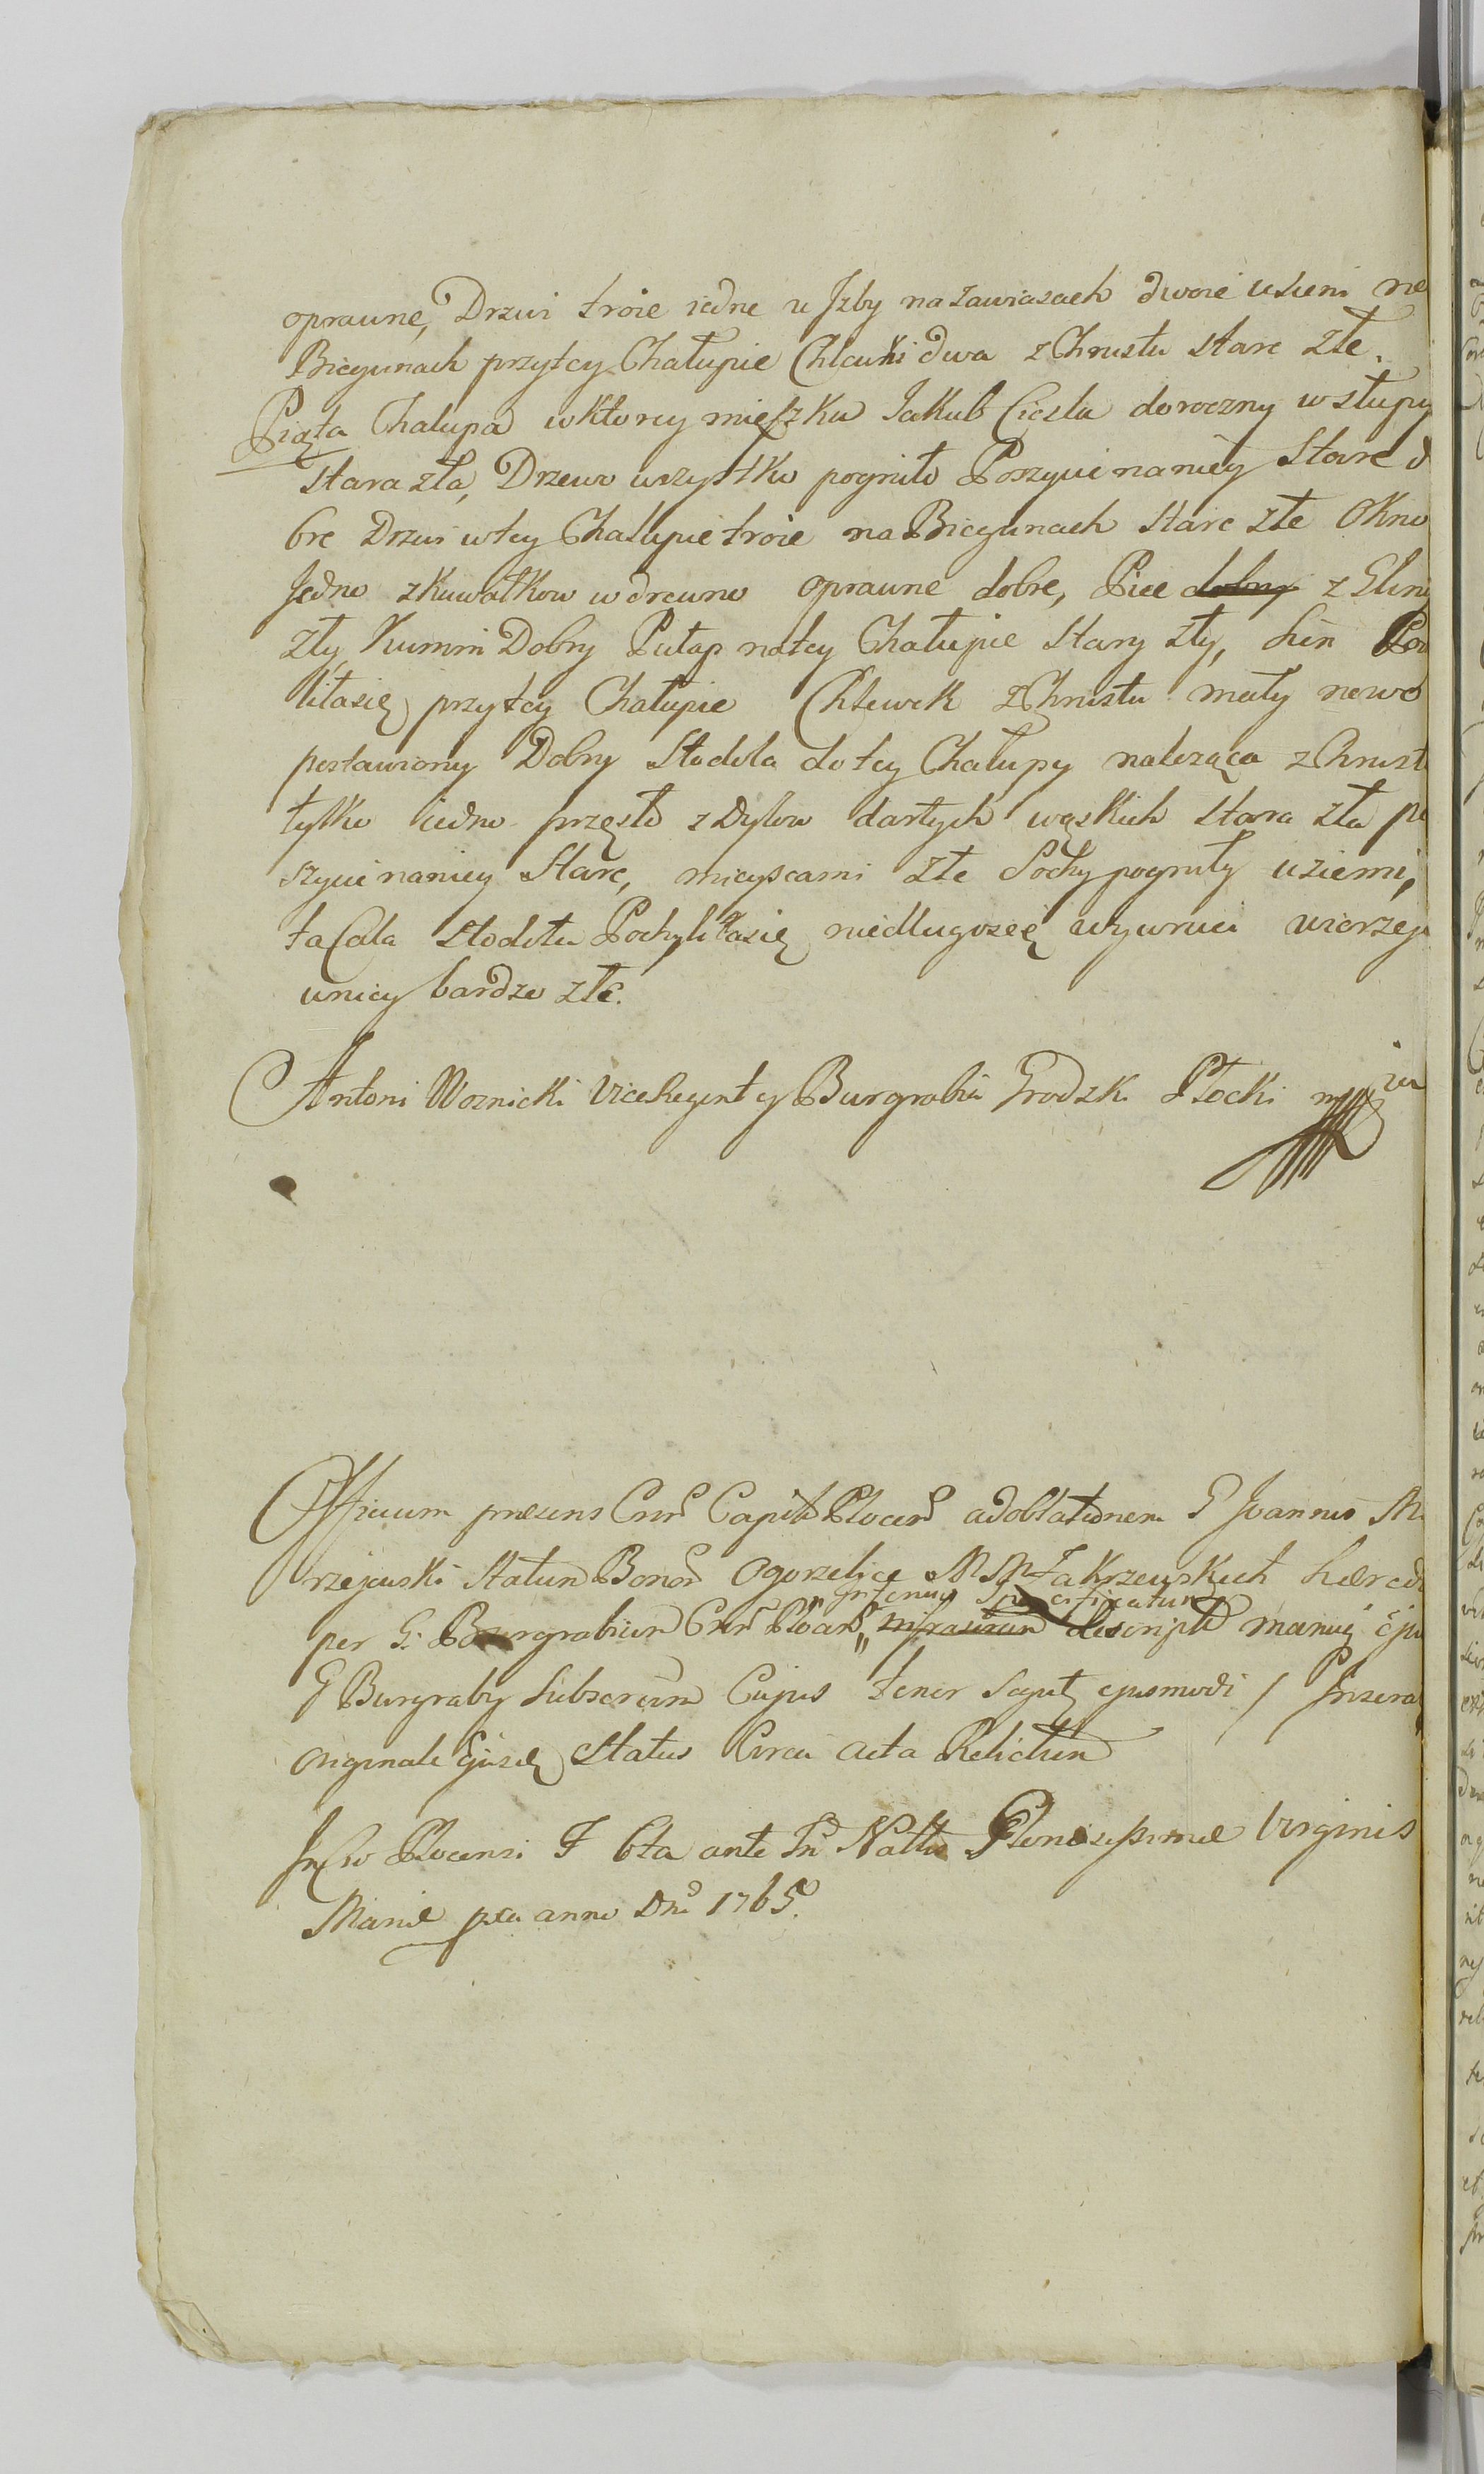 oprawne, Drzwi troie iedne u Jzby na zawiasach dwoie u sieni na
Biegunach przytey Chałupie Chlewki dwa z Chrustu stare złe.
Piąta Chałupa wktorey mięszka Jakub Ciesla doroczny w słupy
stara zła, Drzewo wszystko pogniło Poszycie naniey stare d
bre Drzwi wtey Chałupie troie na Biegunach stare złe Okno
Jedno z kawałkow w drewno oprawne dobre, Piec dobry z Gliny
zły, Kumin Dobry Pułap natey Chałupie stary zły, sien
liłasię przytey Chałupie Chlewek z Chrustu mały nowo
postawiony Dobry Stodoła do tey Chałupy naleząca z Chrust
tylko iedno przęsło z dylow dartych wąskich stara zła po
szycie naniey stare, mieyscami złe Sochy pogniły uziemi,
ta Cała stodoła Pochyliłasię niedługosię wywruci wierzeie
uniey bardzo złe.
Antoni Woznicki ViceRegent y Burgrabia Grodzk. Płocki
Officium præsens Cnr Capit Plocen ad oblationem G Joannis
rzejewski Statum Bonor Ogorzelice MM Zakrzewskich hæred
Intenus Specificatum
per G. Burgrabium Cnr Plocen descript manuq eju
G Burgraby Subscriptm Cujus tenor sequt ejusmodi /
Originale Ejusdq Status Circa acta Relictum
In Cro Plocensi F 6ta ante Fm Nattis Gloriosissimæ Virginis
Mariæ pxa anno Dni 1765.